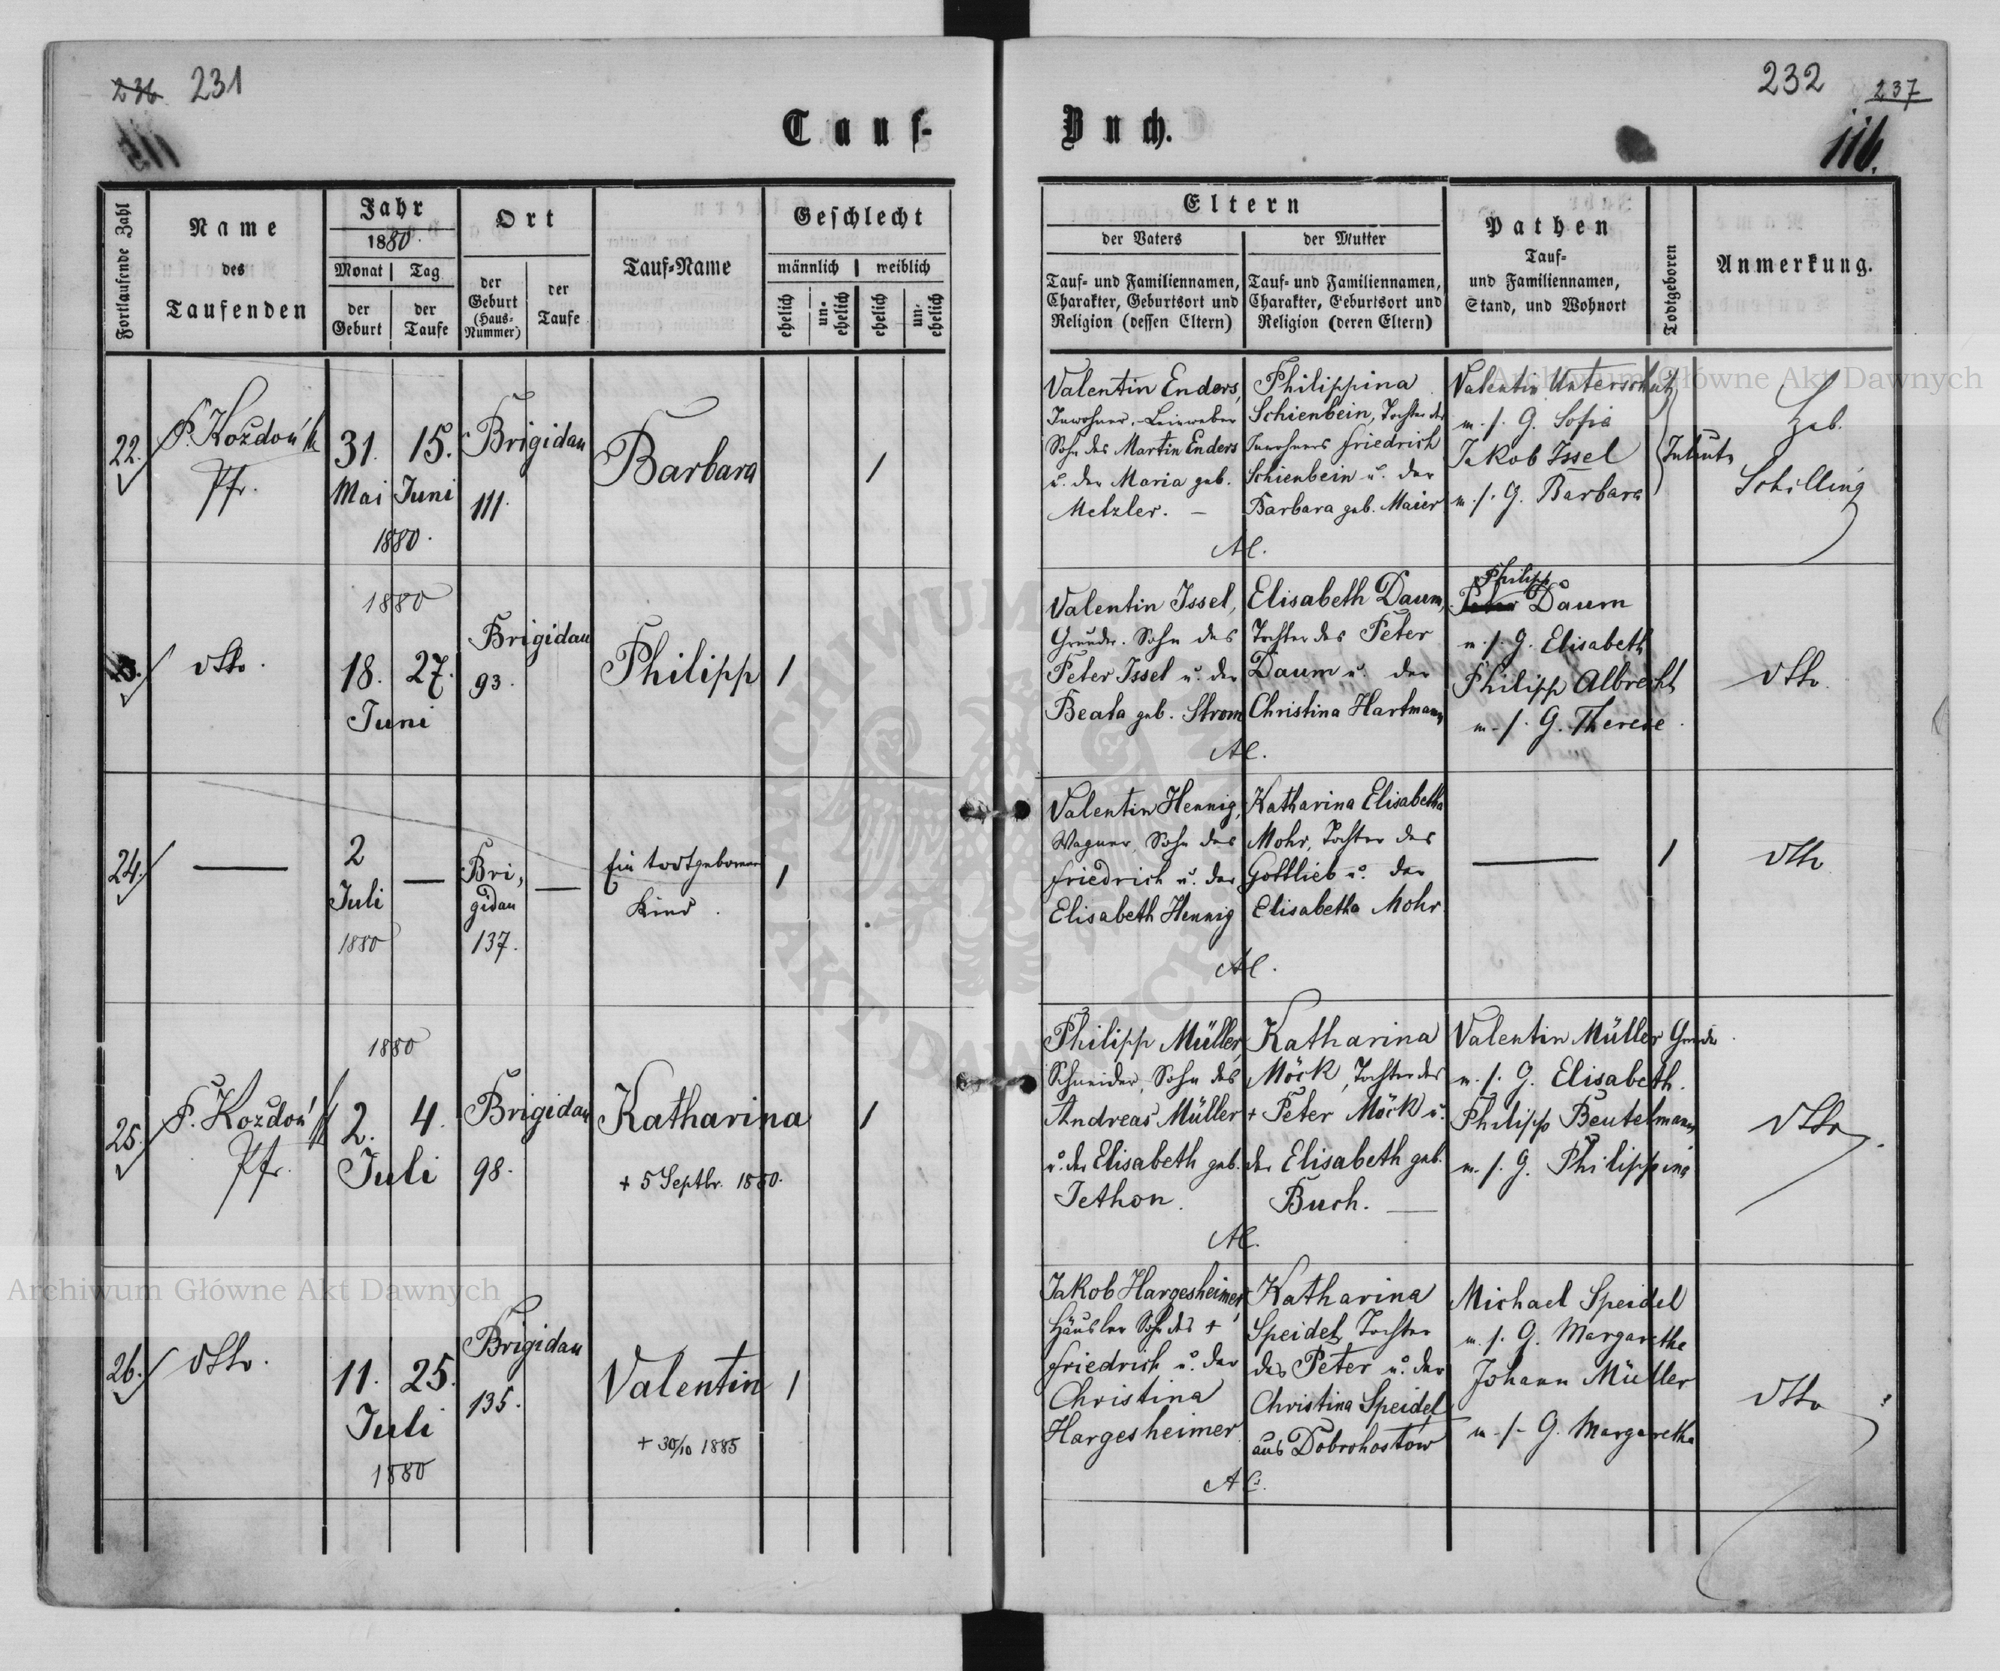 236 231
115
Tauf-
Fortlaufende Zahl
Name
des
Taufenden
Jahr
1880.
Monat Tag
der Geburt
der Taufe
Ort
der Geburt (Haus-Nummer)
der Taufe
Tauf-Name
Geschlecht
männlich weiblich
ehelich
un-ehelich
ehelich
un-ehelich
22.
P. Koždoń
Pfr.
31. 15.
Mai Juni
1880.
Brigidau
111.
Barbara
1
dtto.
1880
18. 27.
Juni
Brigidau
93.
Philipp
1
24.
—
2
Juli
1880
—
Bri,
gidau
137.
—
Ein todtgeborenes
Kind.
1
25.
P. Koždoń
Pfr.
1880
2. 4.
Juli
Brigidau
98.
Katharina
+ 5 Septbr. 1880.
1
26.
dtto.
11. 25.
Juli
1880
Brigidau
135.
Valentin
+ 30/10 1885
1
232 237
116.
Buch.
Eltern
der Vaters
der Mutter
Tauf- und Familiennamen,
Charakter, Geburtsort und
Religion (dessen Eltern)
Tauf- und Familiennamen,
Charakter, Geburtsort und
Religion (deren Eltern)
Pathen
Tauf-
und Familiennamen,
Stand, und Wohnort
Todtgeboren
Anmerkung.
Valentin Enders,
Inwohner, Leinweber
Sohn des Martin Enders
u. der Maria geb.
Metzler. —
Philippina
Schienbein, Tochter des
Inwohners Friedrich
Schienbein u. der
Barbara geb. Maier
AC.
Valentin Unterschütz
m. s. G. Sofia
Jakob Issel
m. s. G. Barbara
Heb.
Schilling
Valentin Issel,
Grundw. Sohn des
Peter Issel u. der
Beata geb. Strom
Elisabeth Daum,
Tochter des Peter
Daum u. der
Christina Hartmann
AC.
Philipp
Peter Daum
m. s. G. Elisabeth
Philipp Albrecht
m. s. G. Therese.
dtto.
Valentin Hennig,
Wagner, Sohn des
Friedrich u. der
Elisabeth Hennig
Katharina Elisabetha
Mohr, Tochter des
Gottlieb u. der
Elisabetha Mohr
AC.
—
1
dtto
Philipp Müller,
Schneider, Sohn des
Andreas Müller
u. der Elisabeth geb.
Jethon.
Katharina
Möck, Tochter des
+ Peter Möck u.
der Elisabeth geb.
Buch. —
AC.
Valentin Müller
m. s. G. Elisabeth.
Philipp Beutelmann
m. s. G. Philippina
dtto.
Jakob Hargesheimer
Häusler Sohn des +
Friedrich u. der
Christina
Hargesheimer
Katharina
Speidel, Tochter
des Peter u. der
Christina Speidel
aus Dobrohostow
AC.
Michael Speidel
m. s. G. Margaretha
Johann Müller
m. s. G. Margaretha
dtto
Archiwum Główne Akt Dawnych
Archiwum Główne Akt Dawnych
ARCHIWUM GŁÓWNE AKT DAWNYCH